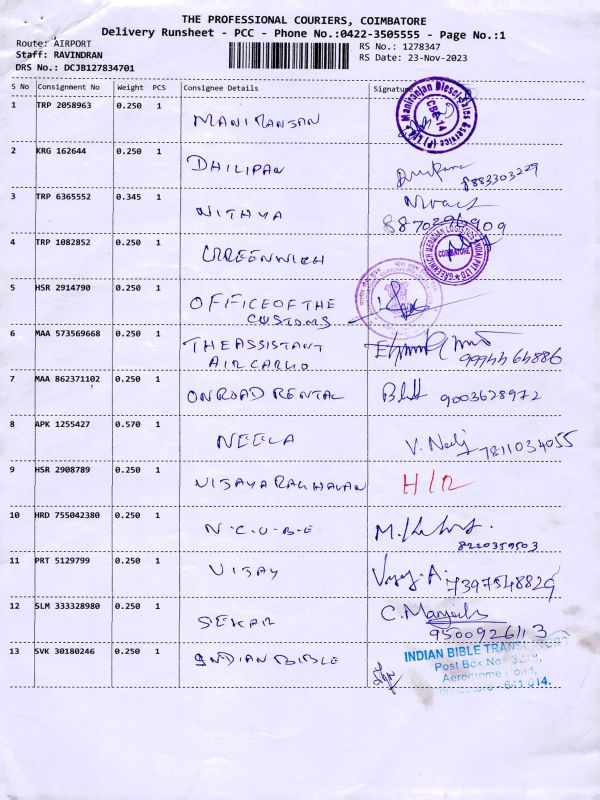 THE PROFESSIONAL COURIERS, COIMBATORE
Delivery Runsheet - PCC - Phone No.:0422-3505555 - Page No.:1
Route: AIRPORT
RS No.: 1278347
Staff: RAVINDRAN
RS Date: 23-Nov-2023
DRS No.: DCJB127834701
S No Consignment No Weight PCS Consignee Details Signature
1 TRP 2058963 0.250 1 MANIRANJAN
2 KRG 162644 0.250 1 DHILIPAN
8883303229
3 TRP 6365552 0.345 1 NITHYA
8870296909
4 TRP 1082852 0.250 1 GREENWICH
COIMBATORE
5 HSR 2914790 0.250 1 OFFICE OF THE
CUSTOMS
6 MAA 573569668 0.250 1 THE ASSISTANT
AIR CARGO 9994464886
7 MAA 862371102 0.250 1 ON ROAD RENTAL 9003628972
8 APK 1255427 0.570 1 NEELA V. 7811034055
9 HSR 2908789 0.250 1 VIJAYARAGHAVAN H/R
10 HRD 755042380 0.250 1 N.C.U.B.E M.
8220359503
11 PRT 5129799 0.250 1 VIJAY Vijay.A. 7397548829
12 SLM 333328980 0.250 1 SEKAR C.
9500926113
13 SVK 30180246 0.250 1 INDIAN BIBLE
INDIAN BIBLE
Post Box No
Aerodrome Road,
641 014.